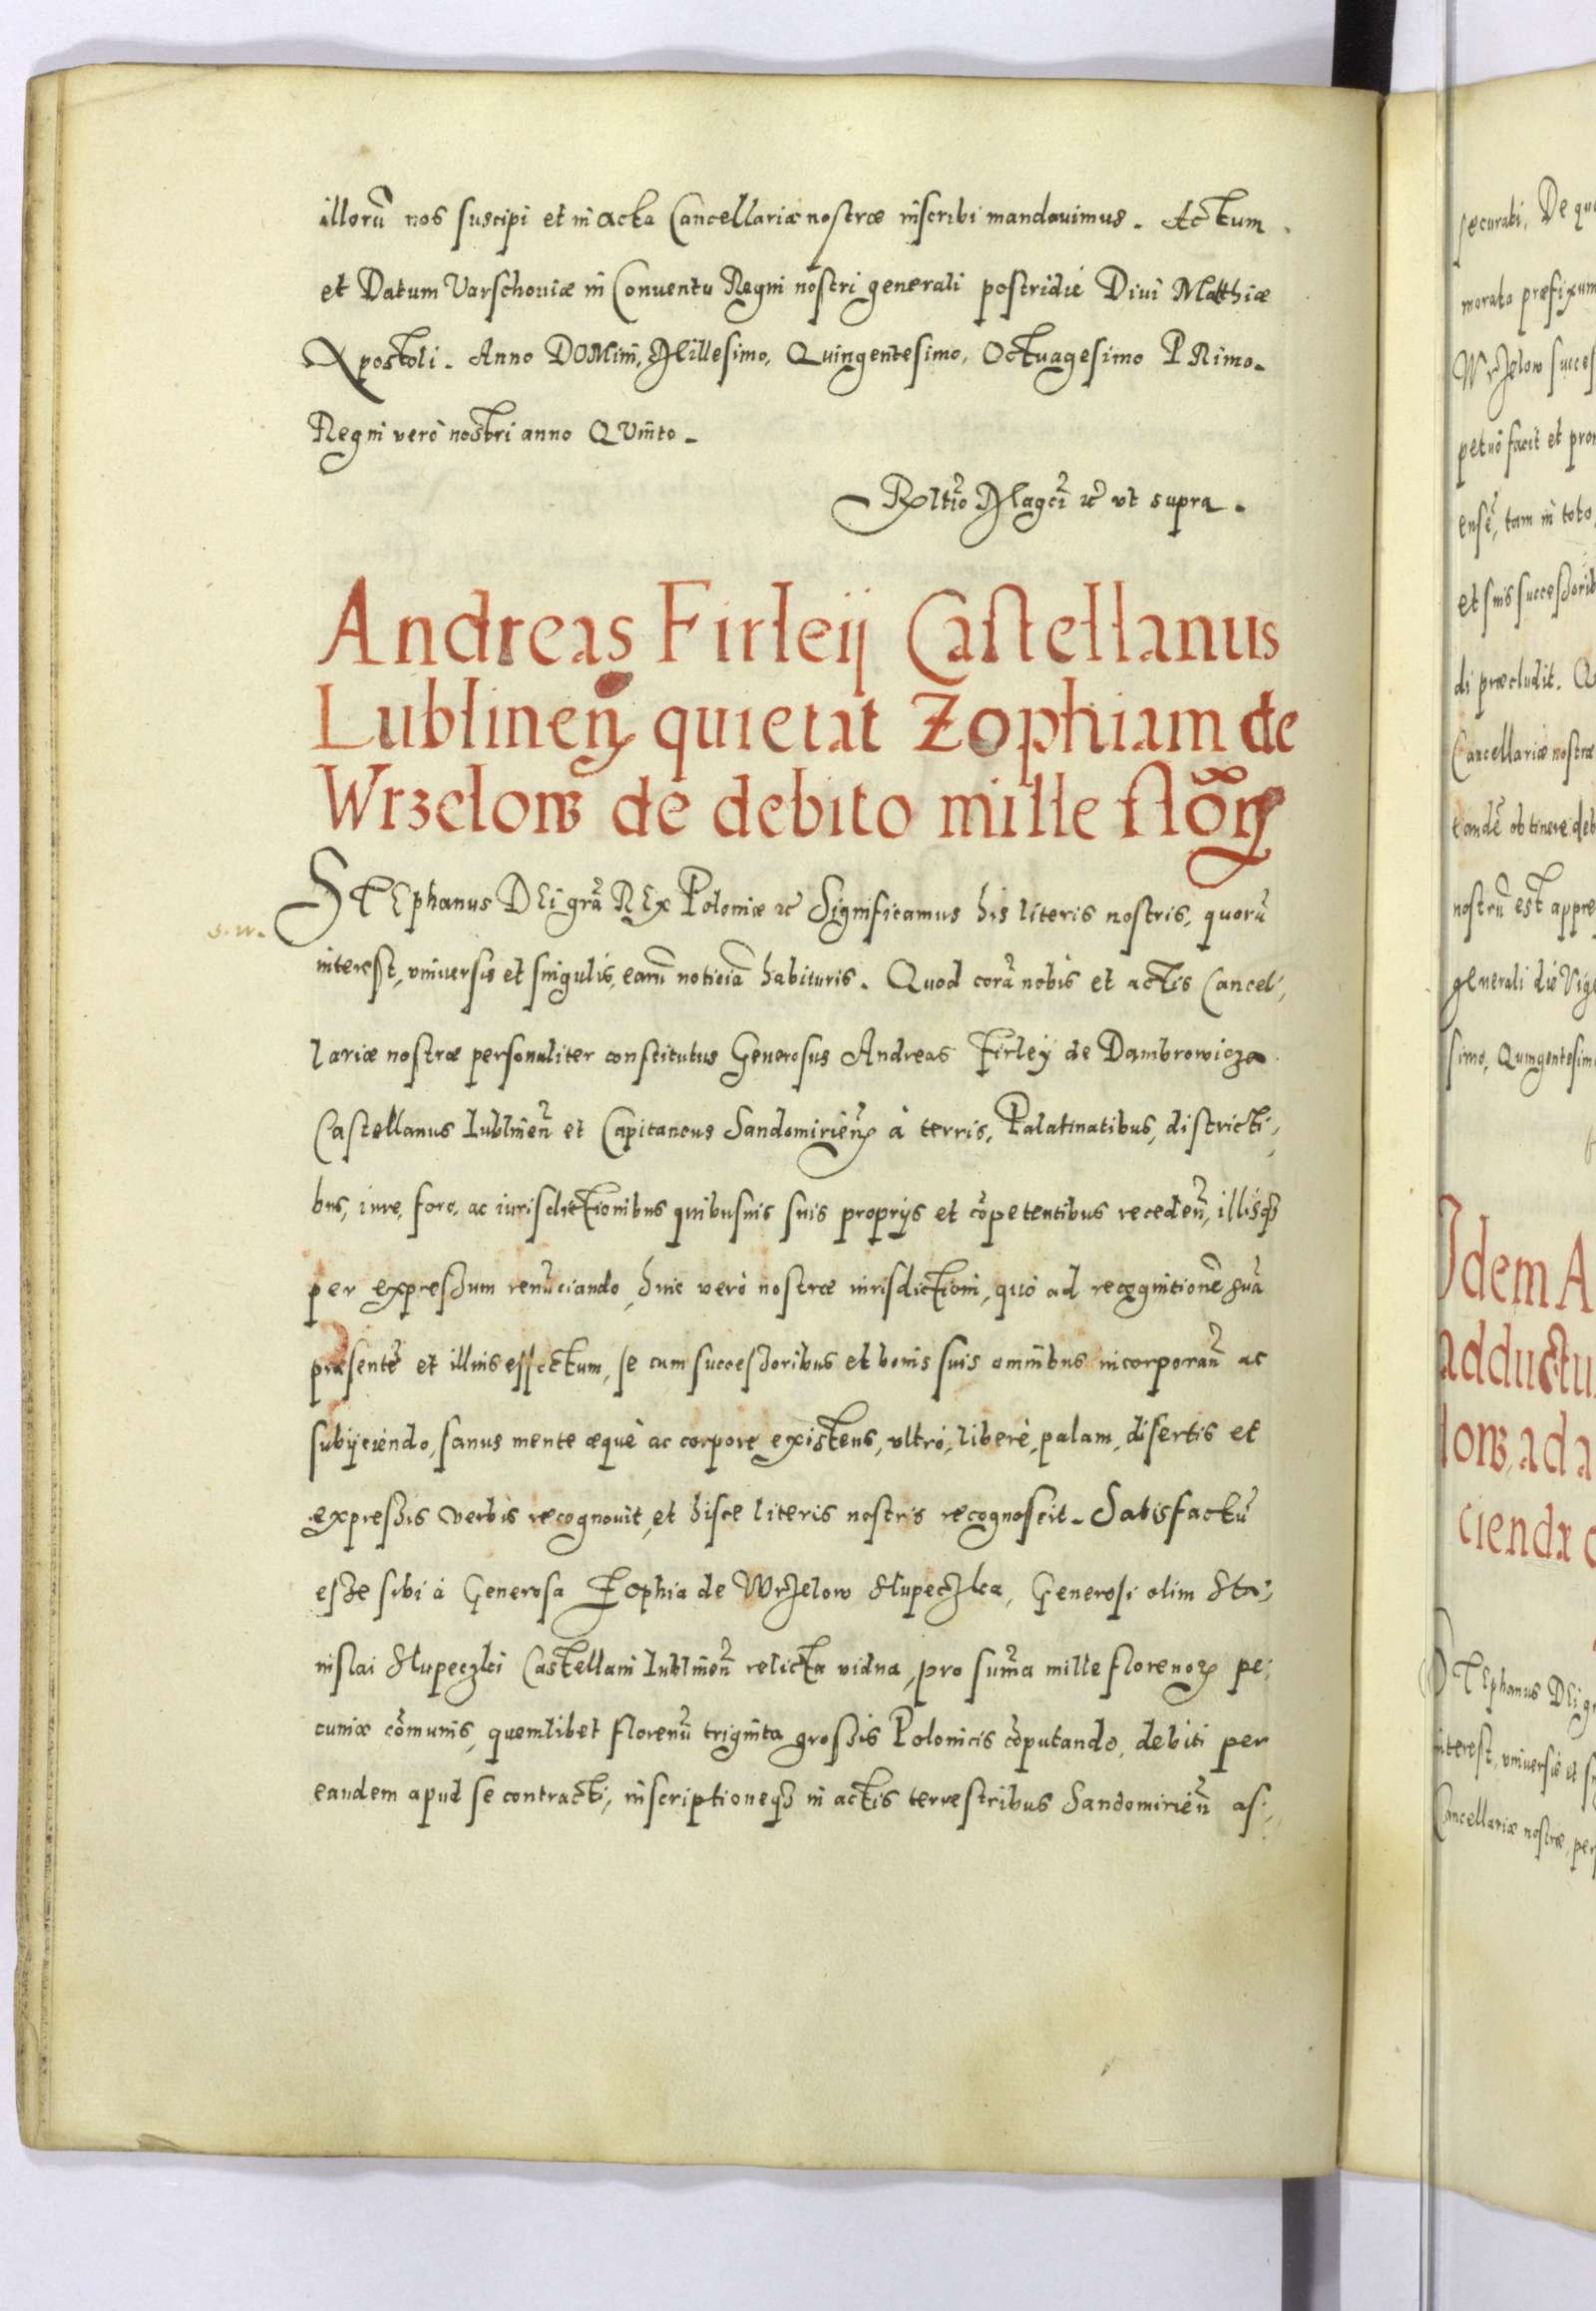 illorũ nos suscipi et in acta Cancellariæ nostræ inscribi mandavimus. Actum
et Datum Varschoviæ in Conventu Regni nostri generali postridiè Divi Matthiæ
Apostoli. Anno DOMini, Millesimo, Quingentesimo, Octuagesimo PRimo.
Regni verò nostri anno QVinto.
Rltio Magci ut supra.
Andreas Firleij Castellanus
Lublineñ quietat Zophiam de
Wrzelow de debito mille floꝝ
STEphanus DEi grã REx Poloniæ ⁊c Significamus his literis nostris, quorũ
s. w.
interest, universis et singulis, earũ noticiã habituris. Quod corã nobis et actis Cancel,
lariæ nostræ personaliter constitutus Generosus Andreas Firleÿ de Dambrowicza
Castellanus Lublineñ et Capitaneus Sandomirieñ à terris, Palatinatibus, districti,
bus, iure, foro, ac iurisdictionibus quibusuis suis proprijs et cõpetentibus recedeñ, illisqȝ
per expressum renũciando, huic verò nostræ iurisdictioni, quò ad recognitionẽ suã
præsentẽ et illius effectum, se cum successoribus et bonis suis omnibus incorporañ ac
subijciendo, sanus mente æquè ac corpore existens, ultrò, liberè, palam, disertis et
expressis verbis recognovit, et hisce literis nostris recognoscit. Satisfactũ
esse sibi à Generosa Zophia de Wrzelow Slupeczka, Generosi olim Sta,
nislai Slupeczki Castellani Lublineñ relicta vidua, pro sum̃a mille florenoꝝ pe,
cuniæ cõmunis, quemlibet florenũ triginta grossis Polonicis cõputando, debiti per
eandem apud se contracti, inscriptioneqȝ in actis terrestribus Sandomirieñ as,
securati, De qu
morata præfixum
Wrzelow succes
petuò facit et pro
ensẽ, tam in toto,
et suis successorib
di præcludit. Q
Cancellariæ nostræ
tandẽ obtinere deb
nostrũ est appre
generali diè Vige
simo, Quingentesimo
Idem A
adductu
low, ad a
ciendæ
STEphanus DEi gr
interest, universis et si
Cancellariæ nostræ, per